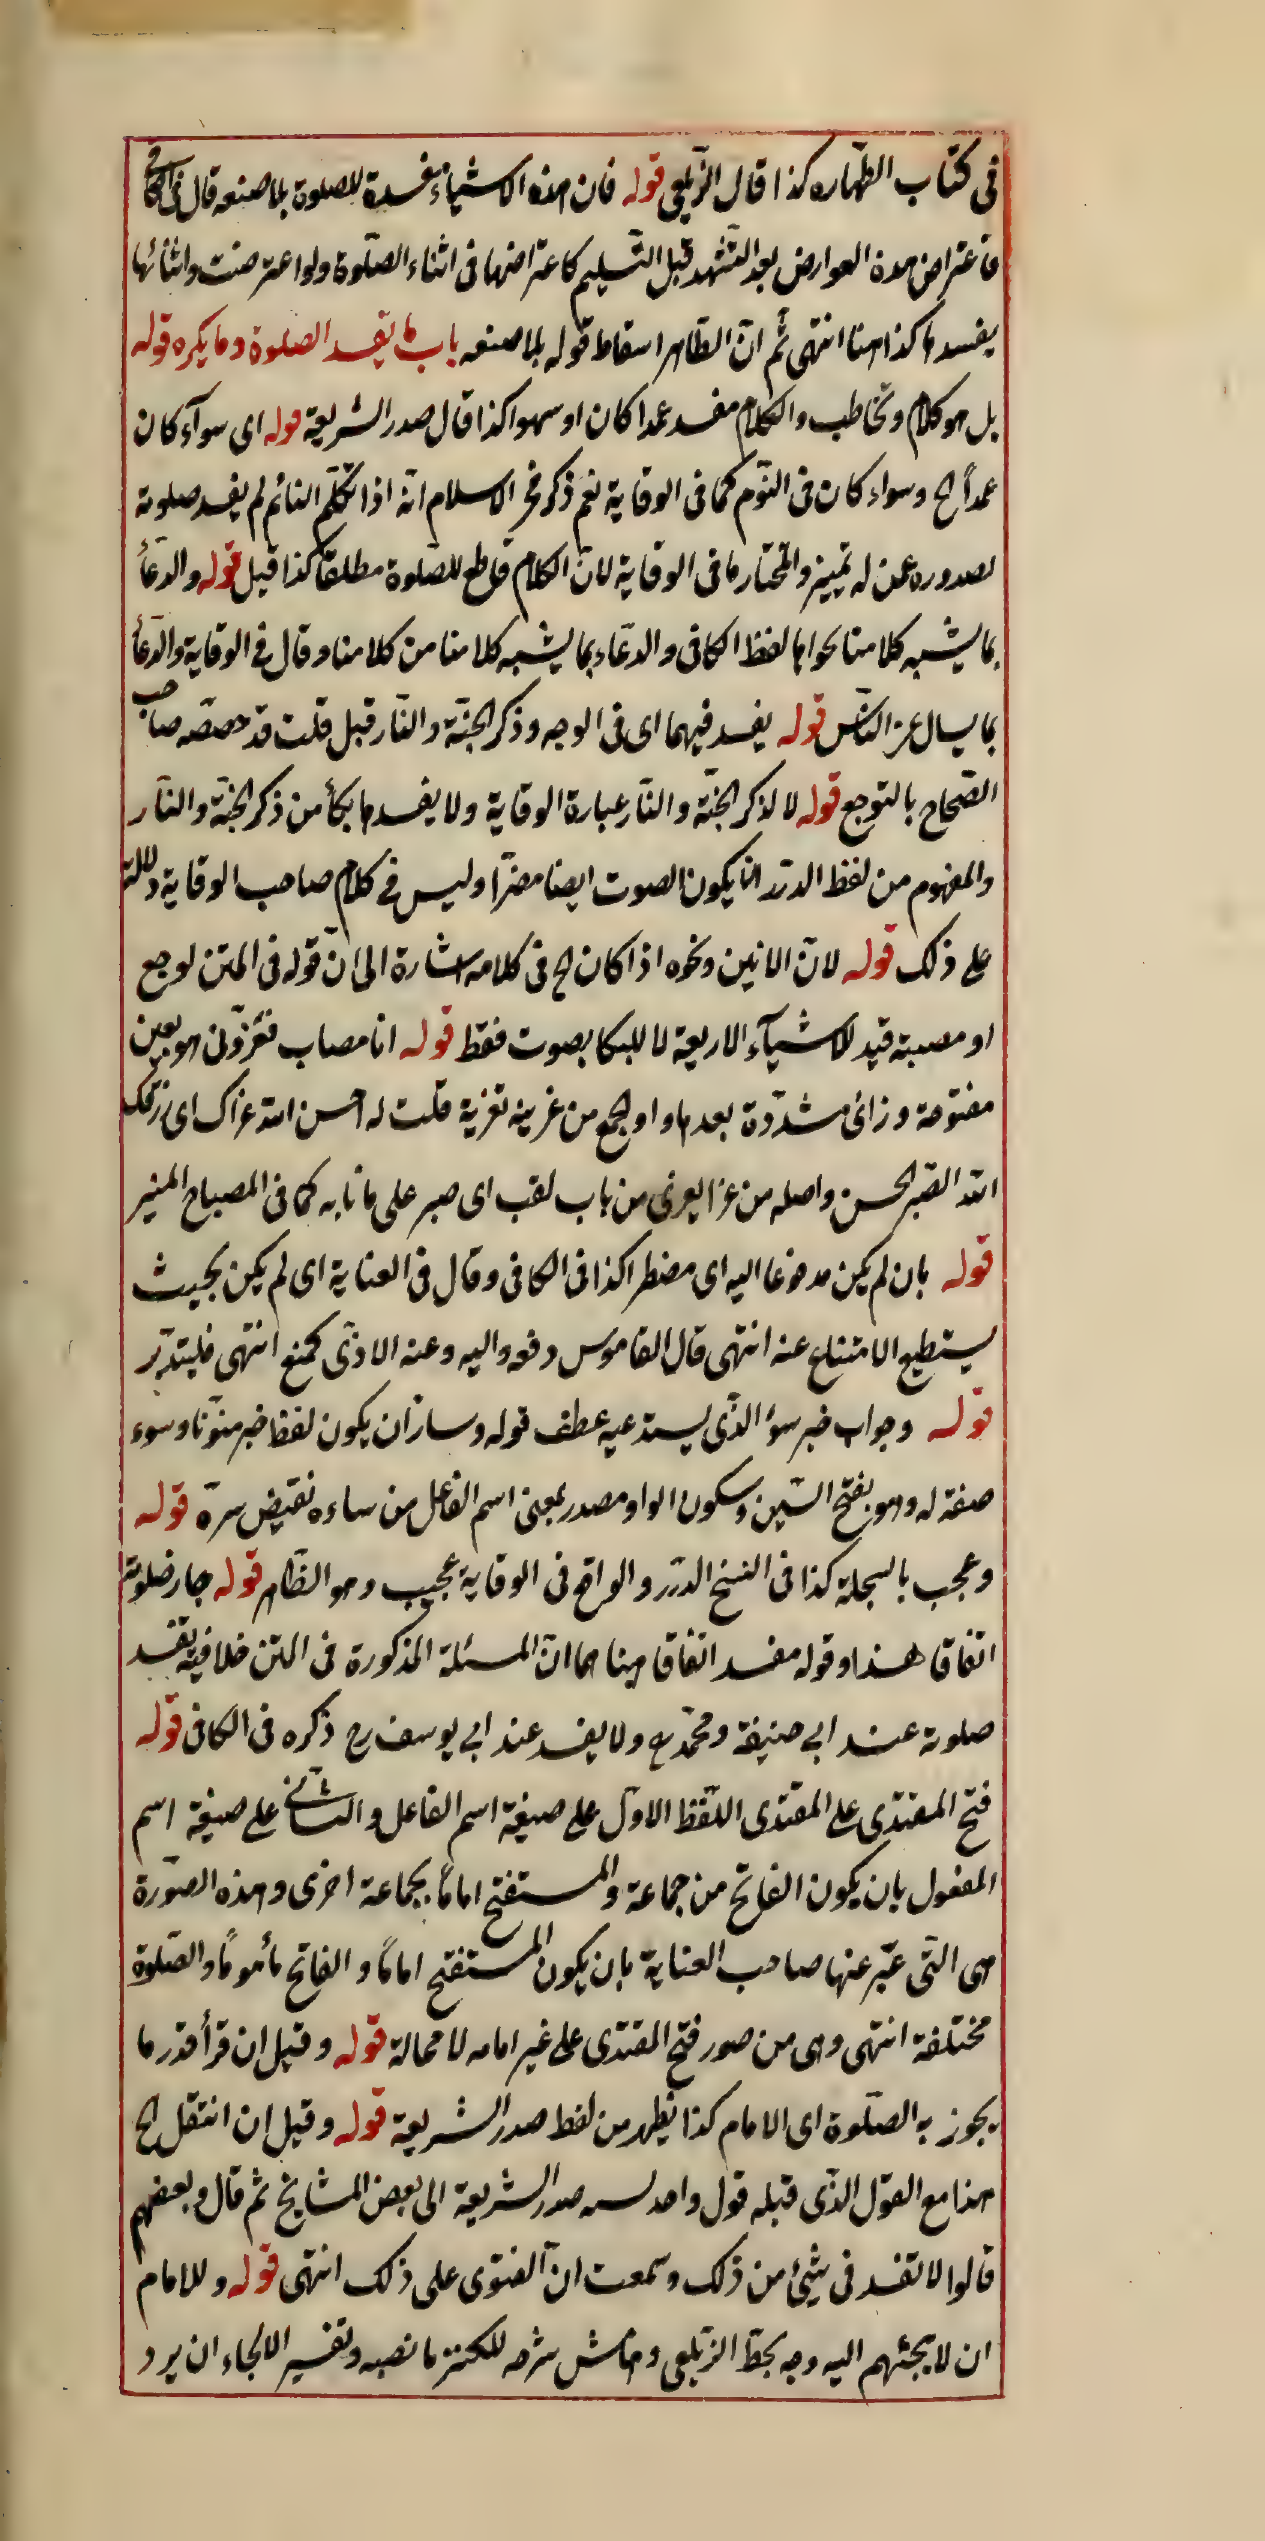 فى كتاب الطهاره كذا قال الزيلعى قوله فان هذه الاشياء مفسدة للصلوة بلا صنعه قال فى الكافى
فاعتراض هذه العوارض بعد التشهد قبل التسليم كاعتراضها فى اثناء الصلوة ولو اعترضت واثنائها
يفسدها كذا هنا انتهى ثم ان الظاهر اسقاط قوله بلا صنعه باب ما يفسد الصلوة وما يكره قوله
بل هو كلام وتخاطب والكلام مفسد عمدا كان او سهوا كذا قال صدر الشريعة قوله اى سوآء كان
عمداً الح وسواء كان فى النوم كما فى الوقاية نعم ذكر فخر الاسلام انه اذا تكلم النائم لم يفسد صلوته
لصدوره عمن له تمييز والمختار ما فى الوقاية لان الكلام قاطع للصلوة مطلقاً كذا قيل قوله والدعأ
بما يشبه كلامنا نحو لفظ الكافى والدعاء بما يشبه كلامنا من كلامنا وقال فى الوقاية والدعأ
بما يسال عن الناس قوله يفسد فيهما اى فى الوجه وذكر الجنة والنار قيل قلت قد خصصه صاحب
الصحاح بالتوجع قوله لا لذكر الجنة والنار عبارة الوقاية ولا يفسدها بكأ من ذكر الجنة والنار
والمفهوم من لفظ الدرر انا يكون الصوت ايضا مضرا وليس فى كلام صاحب الوقاية دلالة
على ذلك قوله لان الانين ونحوه اذا كان الح فى كلامه اشارة الى ان قوله فى المتن لوجع
او مصيبة قيد للاشيآء الاربعة لا للبكا بصوت فقط قوله انا مصاب فعزونى هو بعين
مفتوحة وزائ مشددة بعدها واو الجمع من عزيته تعزية قلت له احسن الله عزاك اى رزقك
الله الصبر الحسن واصله من عزا يعزى من باب لقب اى صبر على ما نابه كما فى المصباح المنير
قوله بان لم يكن مدفوعا اليه اى مضطرا كذا فى الكافى وقال فى العناية اى لم يكن بحيث
يستطيع الامتناع عنه انتهى قال القاموس دفعه واليه وعنه الاذى كمنع انتهى فليتدبر
قوله وجواب خبر سوء الذى يستدعيه عطف قوله وسار ان يكون لفظ خبر منونا وسوء
صفة له وهو بفتح السين وسكون الواو مصدر بمعنى اسم الفاعل من ساءه نقيض سره قوله
وعجب بالسبحلة كذا فى النسخ الدرر والواقع فى الوقاية عجيب وهو الظاهر قوله جاز صلوته
اتفاقا هذا وقوله مفسد اتفاقا هينا هما ان المسئلة المذكورة فى المتن خلافية يفسد
صلوته عند ابى حنيفة ومحمد رح ولا يفسد عند ابى يوسف رح ذكره فى الكافى قوله
فتح المقتدى على المقتدى اللفظ الاول على صيغة اسم الفاعل والثانى على صيغة اسم
المفعول بان يكون الفاتح من جماعة والمستفتح اماماً بجماعة اخرى وهذه الصورة
هى التى عبر عنها صاحب العناية بان يكون المستفتح اماماً والفاتح مأموماً والصلوة
مختلفة انتهى وهى من صور فتح المقتدى على غير امامه لا محالة قوله وقيل ان قرأ قدر ما
يجوز به الصلوة اى الامام كذا يظهر من لفظ صدر الشريعة قوله وقيل ان انتقل الح
هذا مع القول الذى قبله قول واحد صدر الشريعة الى بعض المشايخ ثم قال وبعضهم
قالوا لا تفسد فى شيئ من ذلك وسمعت ان الفتوى على ذلك انتهى قوله وللامام
ان لا يلجئهم اليه وجه بخط الزيلعى وهامش شرحه للكنز ما نصبه وتفسير الالجاء ان يرد